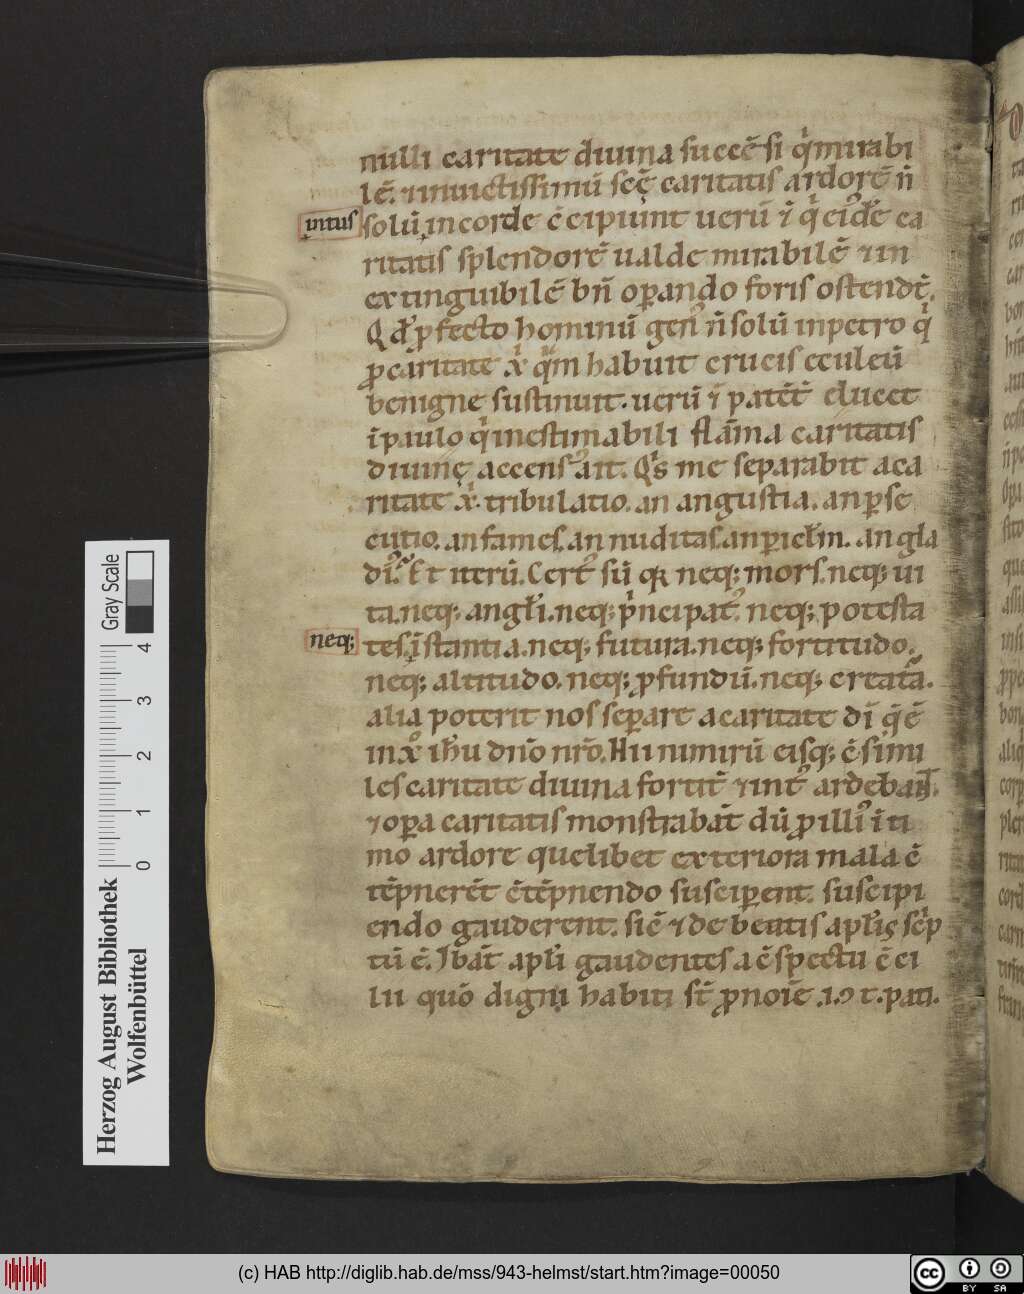 nulli caritate diuina succēsi q̇ mirabi
lē. ⁊ inuictissimū scę̄ caritatis ardorē n̄
intus
solū in corde c̄cipiunt uerū ī q̇ eiꝰdē ca
ritatis splendorē ualde mirabilē ⁊ in
extinguibilē bn̄ oꝑando foris ostendt̄.
Qd̓ ꝓfecto hominū gen̓ n̄ solū in petro q̇
ꝑ caritatē x̓ quā habuit crucis eculeū
benigne sustinuit. uerū ī patēt̄ elucet
ī paulo q̇ inestimabili flāma caritatis
diuinę accensꝰ ait. Q̇s me separabit a ca
ritate x̓. tribulatio. an angustia. an ꝑse
cutio. an fames. an nuditas. an ꝑicl̄m. an gla
diꝰ. Et iterū. Certꝰ sū qꝛ neq; mors. neq; ui
ta. neq; angl̓i. neq; p̓ncipatꝰ. neq; potesta
neq;
tes. īstantia. neq; futura. neq; fortitudo.
neq; altitudo. neq; ꝓfundū. neq; creataᷓ.
alia poterit nos seꝑare a caritate dī q̄ ē
in xp̄o ih̄u dn̄o nr̄o. Hii nimirū eisq; c̄simi
les caritate diuina fortit̓ ⁊ intꝰ ardebant̄.
⁊ oꝑa caritatis monstrabāt dū ꝓ illiꝰ īti
mo ardore quelibet exteriora mala c̄
tēpnerēt c̄tēpnendo susciꝑent. suscipi
endo gauderent. sic̄ ⁊ de beatis apl̓is sc̓p
tū ē. Ibāt apl̓i gaudentes a c̄spectu c̄ci
lii quō digni habiti st̄ ꝓ noīe .i.ꝯt.pati.
Herzog August Bibliothek
Wolfenbüttel
Gray Scale
0 1 2 3 4
(c) HAB http://diglib.hab.de/mss/943-helmst/start.htm?image=00050
cc BY SA